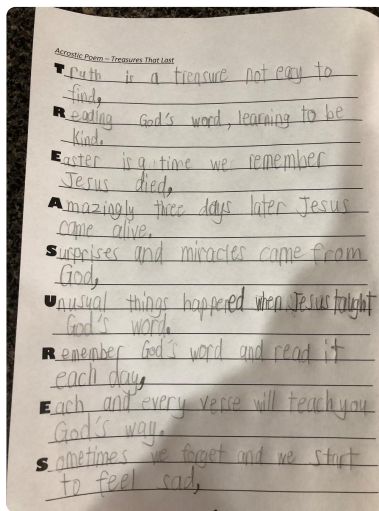 Acrostic Poem – Treasures That Last
Truth is a treasure not easy to
find,
Reading God's word, learning to be
kind.
Easter is a time we remember
Jesus died,
Amazingly three days later Jesus
came alive.
Surprises and miracles came from
God,
Unusual things happered when Jesus talght
God's word.
Remember God's word and read it
each day,
Each and every verse will teach you
God's way.
Sometimes we forget and we start
to feel sad,